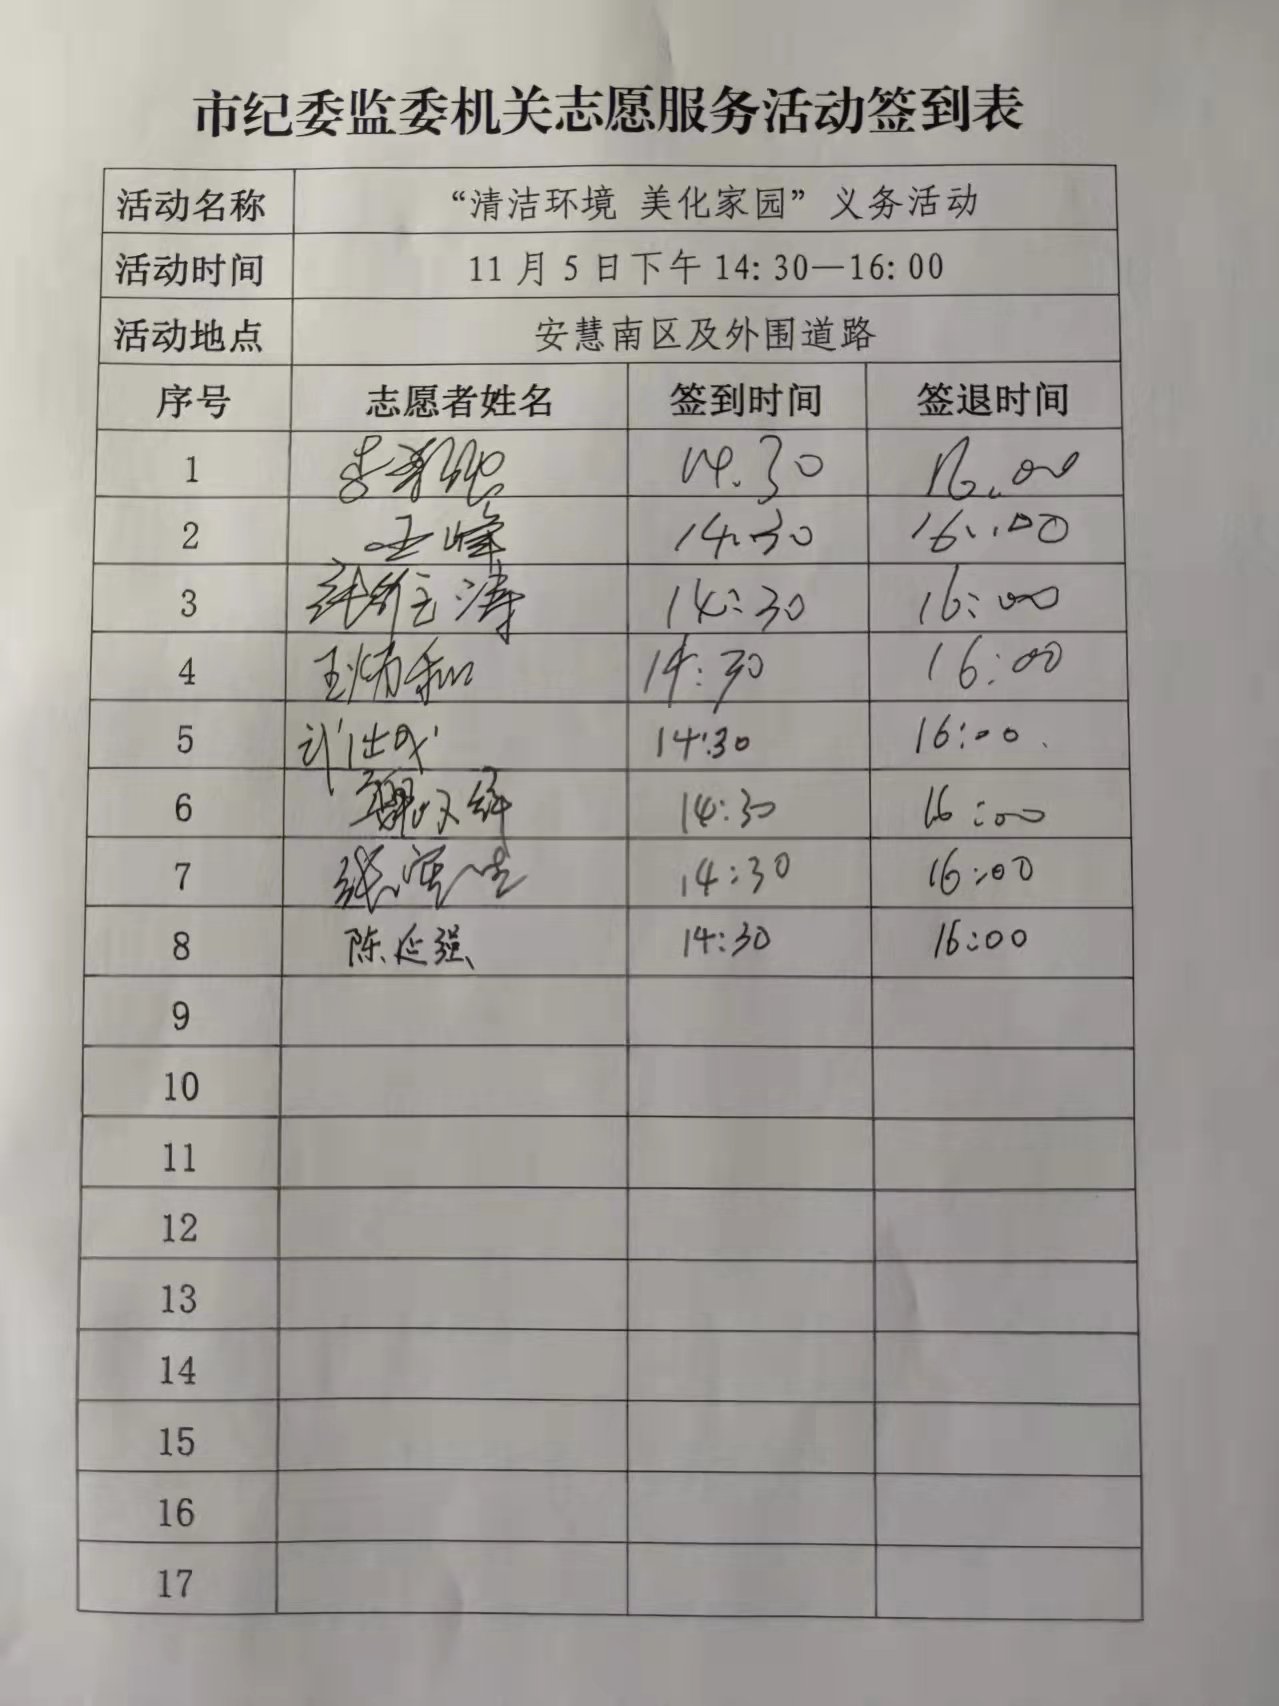 市纪委监委机关志愿服务活动签到表
活动名称 “清洁环境 美化家园”义务活动
活动时间 11月5日下午14:30—16:00
活动地点 安慧南区及外围道路
序号 志愿者姓名 签到时间 签退时间
1 14.30 16.00
2 王峰 14:30 16:00
3 14:30 16:00
4 14:30 16:00
5 14:30 16:00
6 14:30 16:00
7 14:30 16:00
8 陈延强 14:30 16:00
9
10
11
12
13
14
15
16
17